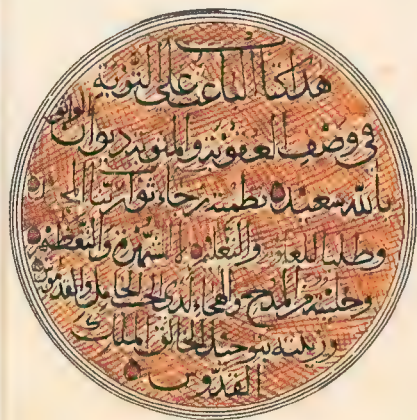 هذا كتاب الباعث على التوبة
في وصف العقوبة والمثوبة ديوان الواثق
بالله سعيد نظمته رجاء ثواب ربنا
وطلبا للتعلم والتعليم لا للشهرة والتعظيم
وخليته من المدح والهجاء لذي الحب الخامل و
وزينته بتوحيد الخالق الملك
القدوس